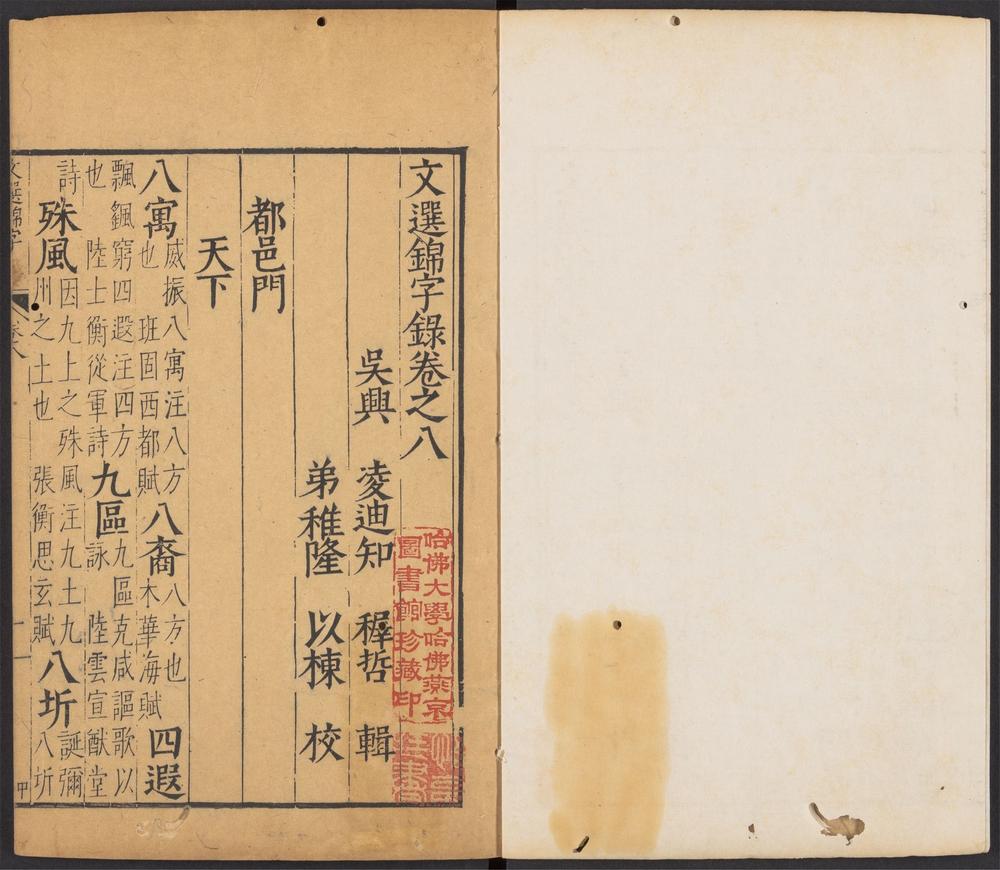 文選錦字錄卷之八
吳興 凌迪知 穉哲 輯
弟稚隆 以棟 校
都邑門
天下
八寓 威振八寓注八方也 班固西都賦 八裔 八方也 木華海賦 四遐
飄颻窮四遐注四方也 陸士衡從軍詩 九區 九區克咸謳歌以詠 陸雲宣猷堂
詩 殊風 因九上之殊風注九土九州之土也 張衡思玄賦 八圻 誕彌八圻
文選錦字 卷八 一 甲
哈佛大學哈佛燕京
圖書館珍藏印